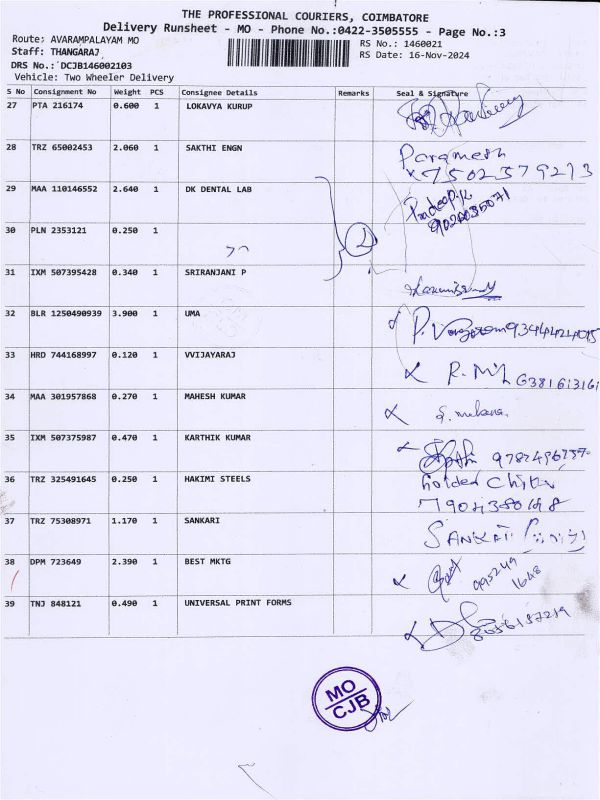 THE PROFESSIONAL COURIERS, COIMBATORE
Delivery Runsheet - MO - Phone No.:0422-3505555 - Page No.:3
Route: AVARAMPALAYAM MO
RS No.: 1460021
Staff: THANGARAJ
RS Date: 16-Nov-2024
DRS No.: DCJB146002103
Vehicle: Two Wheeler Delivery
S No Consignment No Weight PCS Consignee Details Remarks Seal & Signature
27 PTA 216174 0.600 1 LOKAVYA KURUP
28 TRZ 65002453 2.060 1 SAKTHI ENGN Paramesh
7502379213
29 MAA 110146552 2.640 1 DK DENTAL LAB Pradeep.K
30 PLN 2353121 0.250 1 2
31 IXM 507395428 0.340 1 SRIRANJANI P
32 BLR 1250490939 3.900 1 UMA
33 HRD 744168997 0.120 1 VVIJAYARAJ
34 MAA 301957868 0.270 1 MAHESH KUMAR
35 IXM 507375987 0.470 1 KARTHIK KUMAR
36 TRZ 325491645 0.250 1 HAKIMI STEELS
37 TRZ 75308971 1.170 1 SANKARI
38 DPM 723649 2.390 1 BEST MKTG 995249
1648
39 TNJ 848121 0.490 1 UNIVERSAL PRINT FORMS
MO
CJB